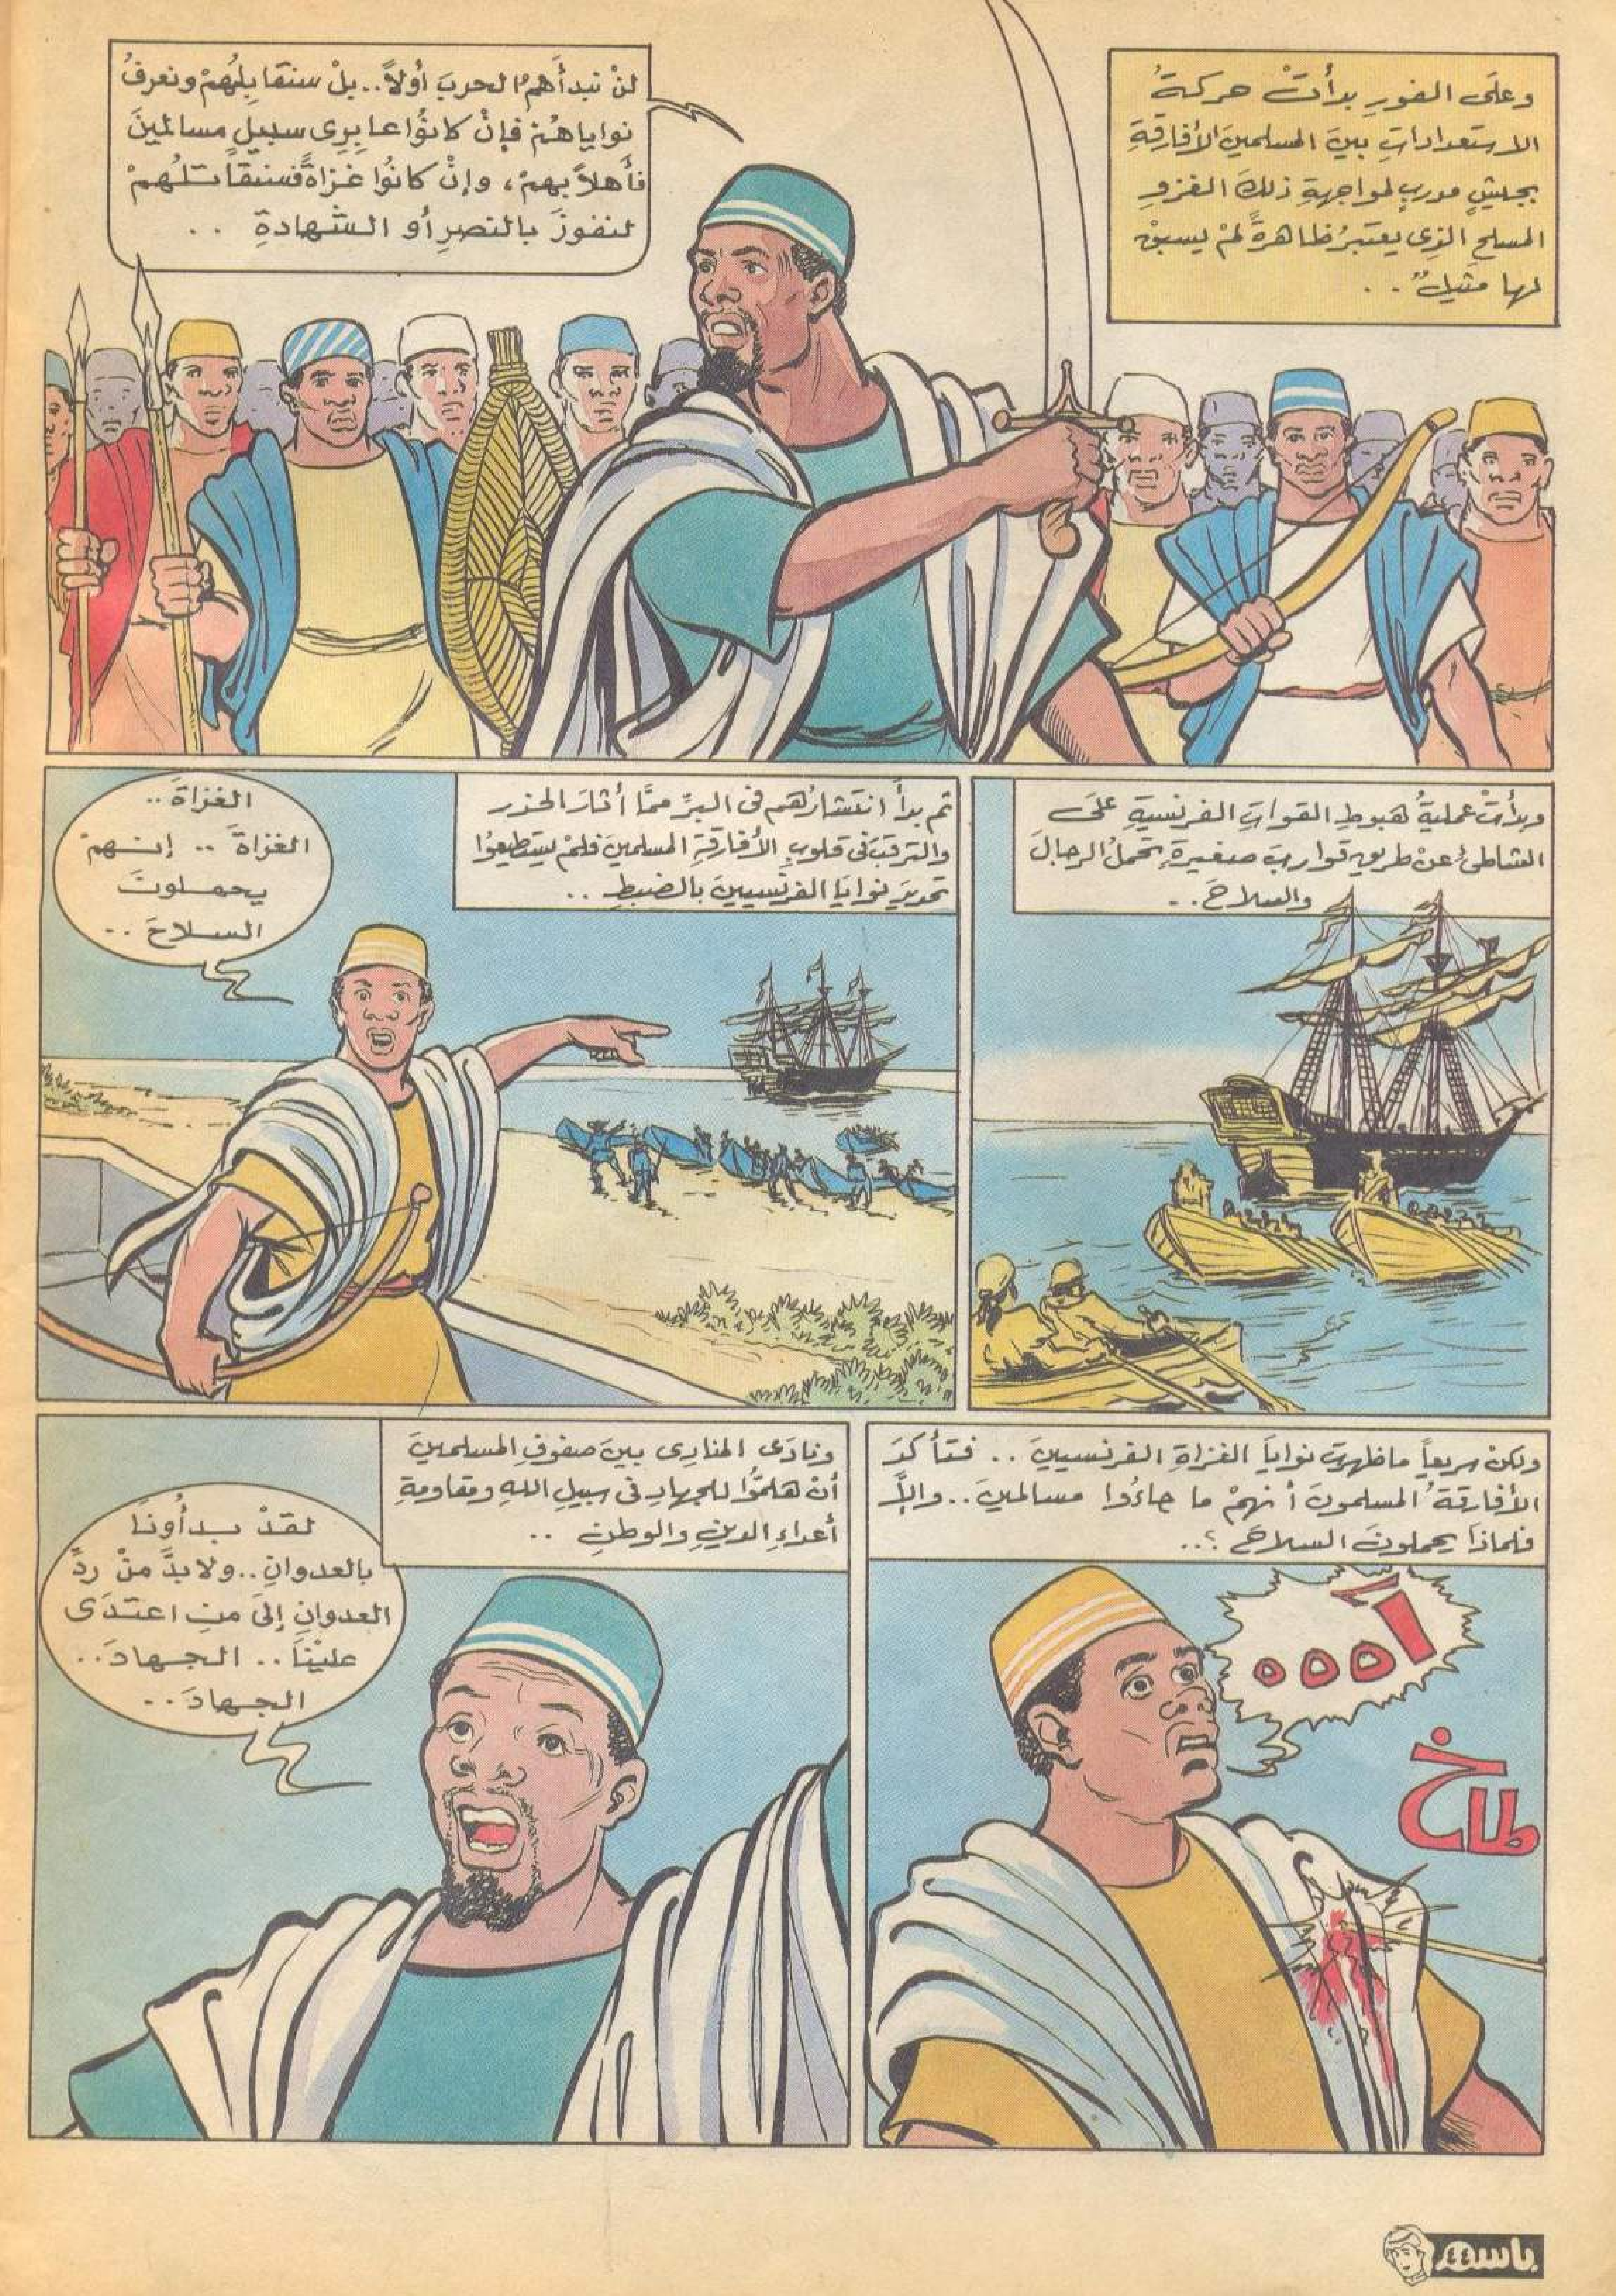 وعلَى الفورِ بدأَتْ حركةُ
الاستعداداتِ بينَ المسلمينَ الأفارقةِ
بجيشٍ مدربٍ لمواجهةِ ذلكَ الغزوِ
المسلحِ الذِى يعتبرُ ظاهرةً لمْ يسبقْ
لها مثيلٌ . .
لنْ نبدأَهمُ الحربَ أولاً.. بلْ سنقابلُهمْ ونعرفُ
نواياهُمْ فإنْ كانُوا عابرِى سبيلٍ مسالمينَ
فأهلاً بهمْ، وإنْ كانُوا غزاةً فسنقاتلُهمْ
لنفوزَ بالنصرِ أو الشهادةِ . .
وبدأتْ عمليةُ هبوطِ القواتِ الفرنسيةِ علىَ
الشاطئِ عنْ طريقِ قواربَ صغيرةٍ تحملُ الرجالَ
والسلاحَ . .
ثم بدأَ انتشارُهم فى البرِّ ممَّا أثارَ الحذر
والترقبَ فى قلوبِ الأفارقةِ المسلمينَ فلمْ يستطيعُوا
تحديدَ نوايَا الفرنسيينَ بالضبطِ . .
الغزاةَ ..
الغزاةَ .. إنهمْ
يحملونَ
السلاحَ ..
ولكنْ سريعاً ما ظهرتْ نوايَا الغزاةِ الفرنسيينَ .. فتأكدَ
الأفارقةُ المسلمونَ أنهمْ ما جاءُوا مسالمينَ .. وإلاَّ
فلماذَا يحملونَ السلاحَ ؟..
آ ه ه ه
طاخ
ونادَى المنادِى بينَ صفوفِ المسلمينَ
أنْ هلمُّوا للجهادِ فى سبيلِ اللهِ ومقاومةِ
أعداءِ الدينِ والوطنِ ..
لقدْ بدأُونَا
بالعدوانِ .. ولابدَّ منْ ردِّ
العدوانِ إلىَ منِ اعتدَى
علينَا .. الجهادَ ..
الجهادَ ..
باسم